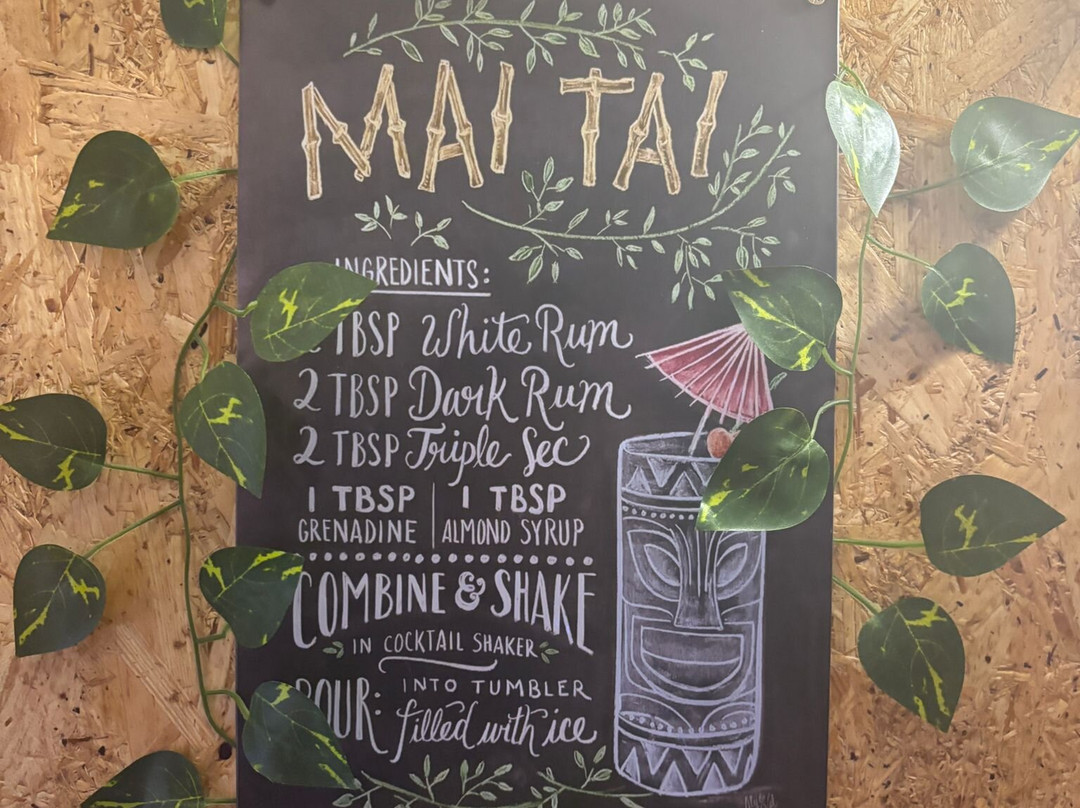 MAI TAI
INGREDIENTS:
TBSP White Rum
2 TBSP Dark Rum
2 TBSP Triple Sec
1 TBSP | 1 TBSP
GRENADINE | ALMOND SYRUP
COMBINE & SHAKE
IN COCKTAIL SHAKER
POUR: INTO TUMBLER
filled with ice